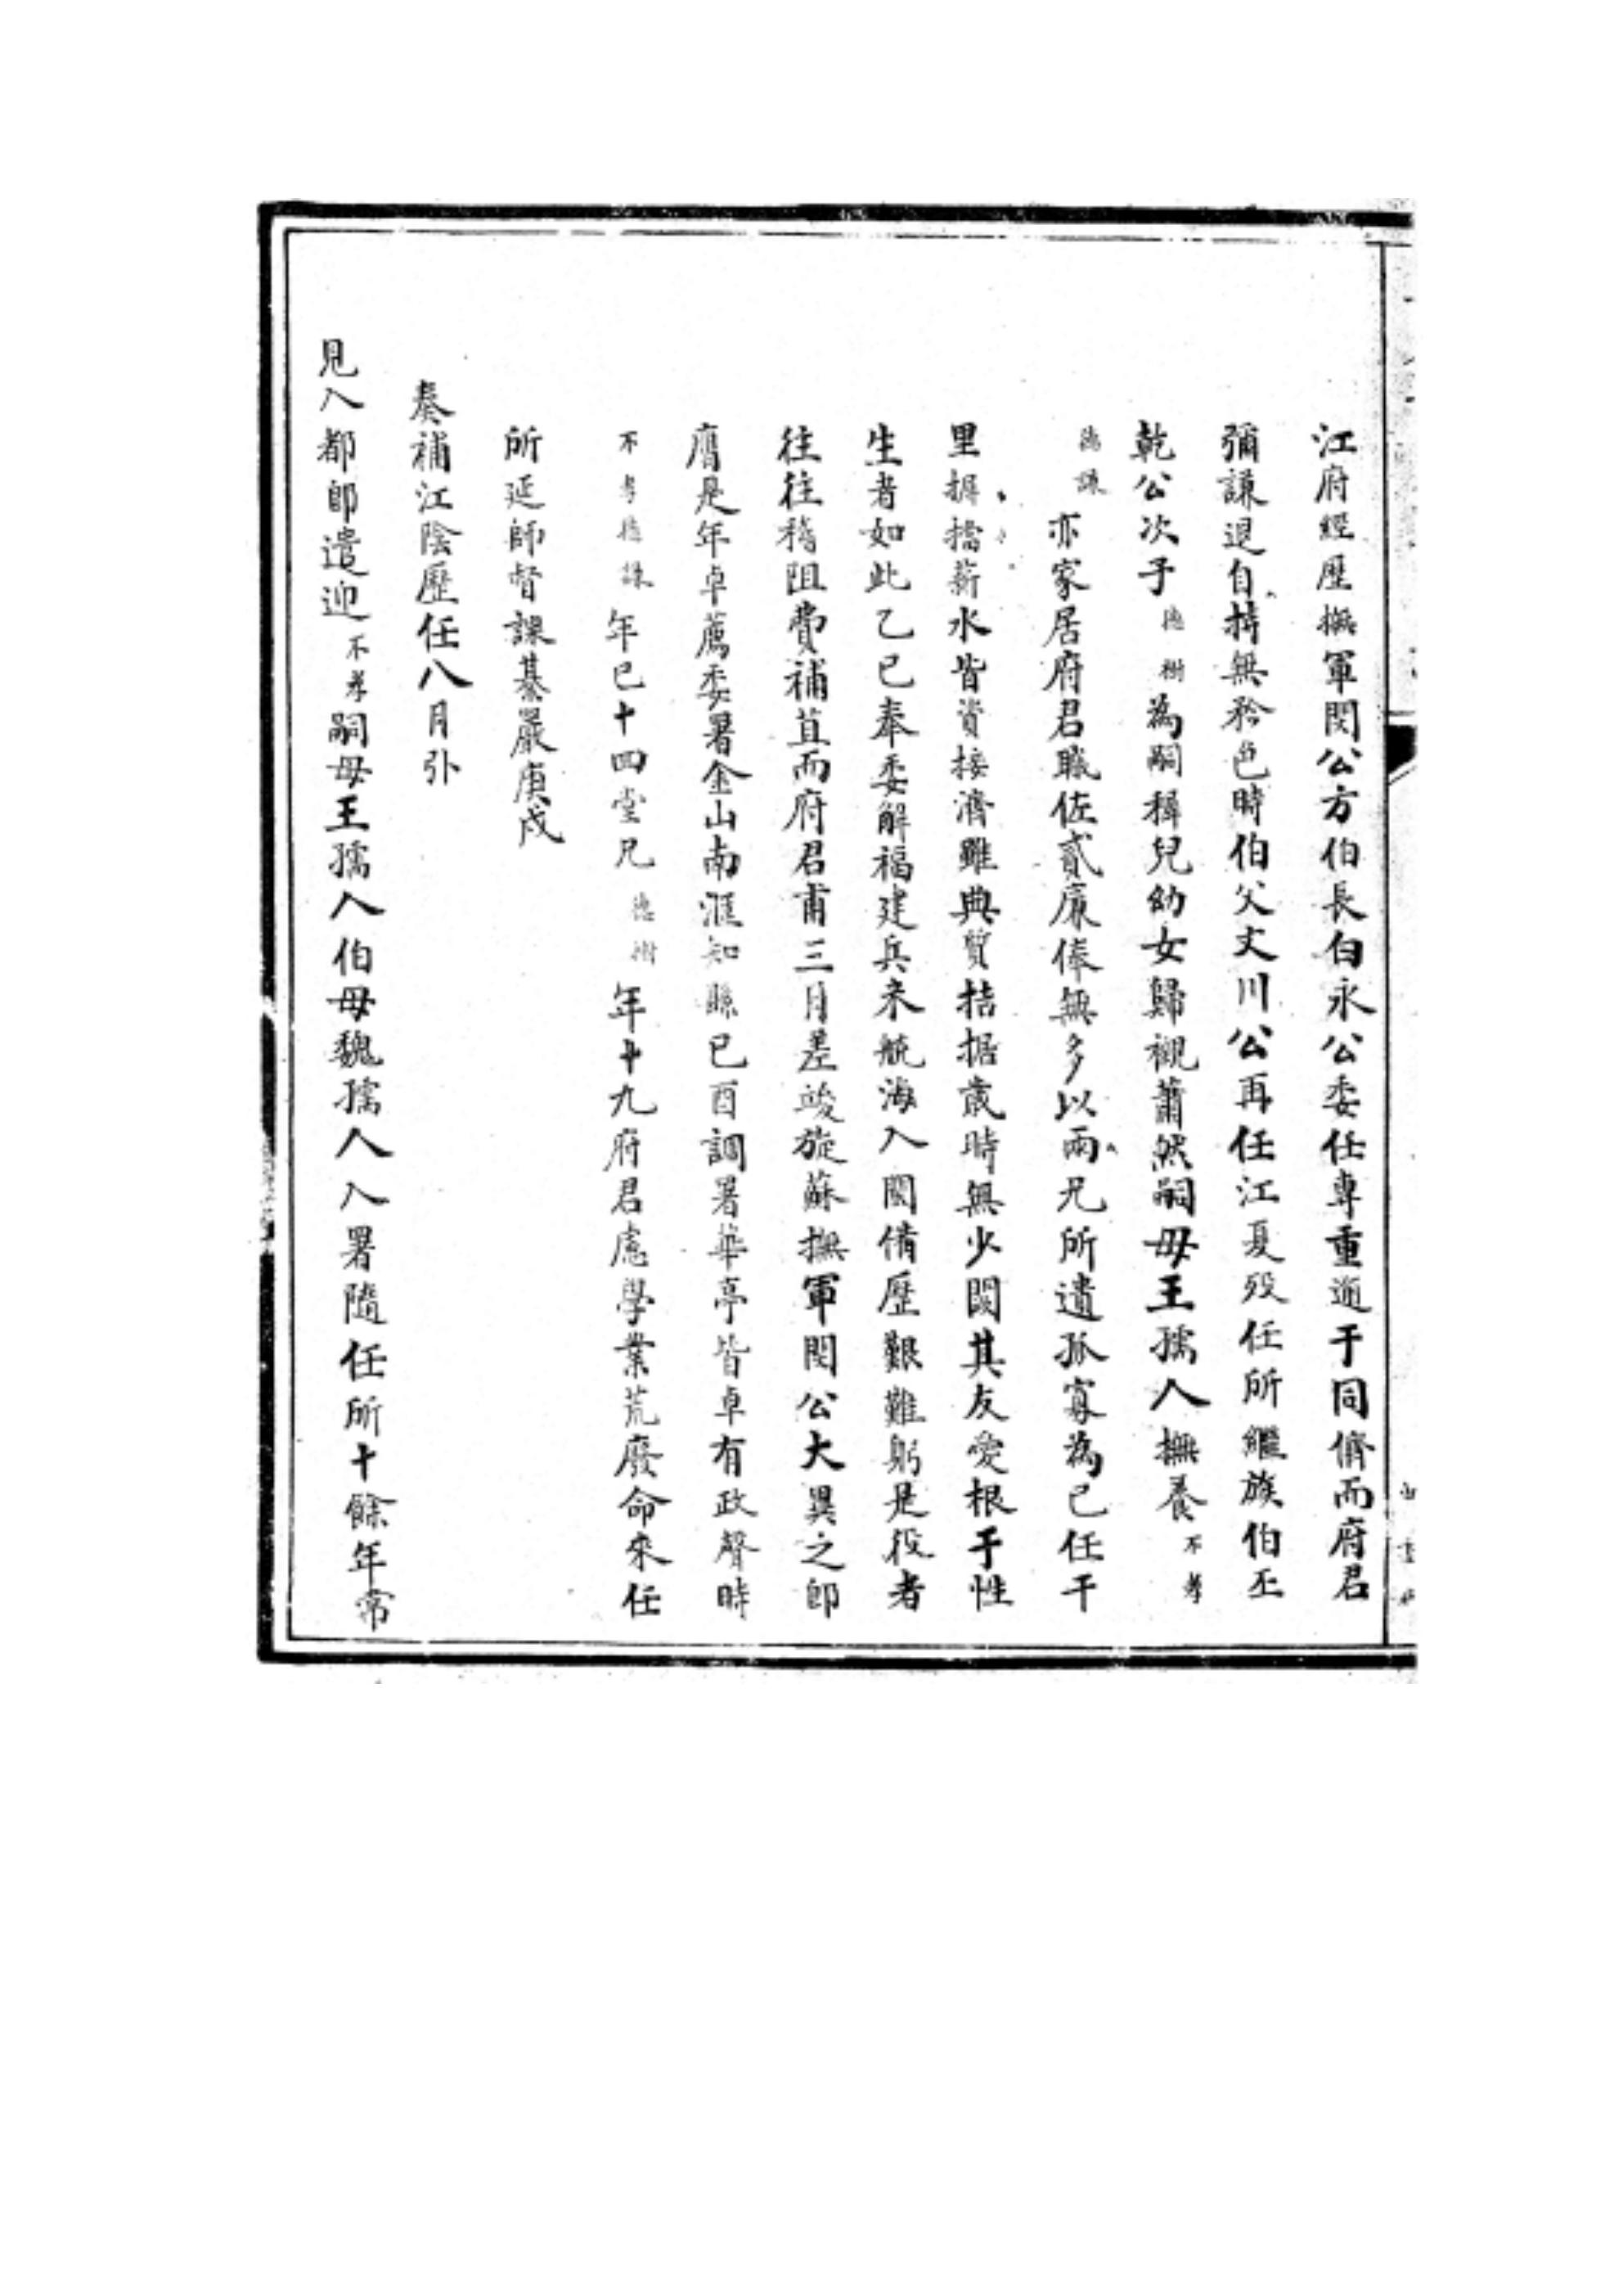 江府經歷撫軍閔公方伯長白永公委任專重逈于同儕而府君
彌謙退自持無矜色時伯父丈川公再任江夏歿任所繼族伯丕
乾公次子德樹為嗣稺兒幼女歸櫬蕭然嗣母王孺人撫養不孝
德謙亦家居府君職佐貳廉俸無多以兩兄所遺孤寡為己任千
里摒擋薪水皆資接濟雖典質拮据歲時無少闕其友愛根于性
生者如此乙巳奉委解福建兵米航海入閩備歷艱難躬是役者
往往稽阻費補苴而府君甫三月差竣旋蘇撫軍閔公大異之卽
膺是年卓薦委署金山南滙知縣己酉調署華亭皆卓有政聲時
不孝德謙年已十四堂兄德樹年十九府君慮學業荒廢命來任
所延師督課綦嚴庚戌
奏補江陰歷任八月引
見入都卽遣迎不孝嗣母王孺人伯母魏孺人入署隨任所十餘年常